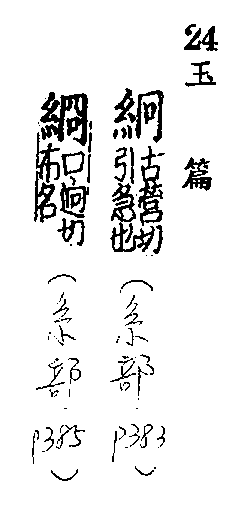 24
玉篇
絅 古營切 引急也 (糸部 p383)
綗 口逈切 布名 (糸部 p385)